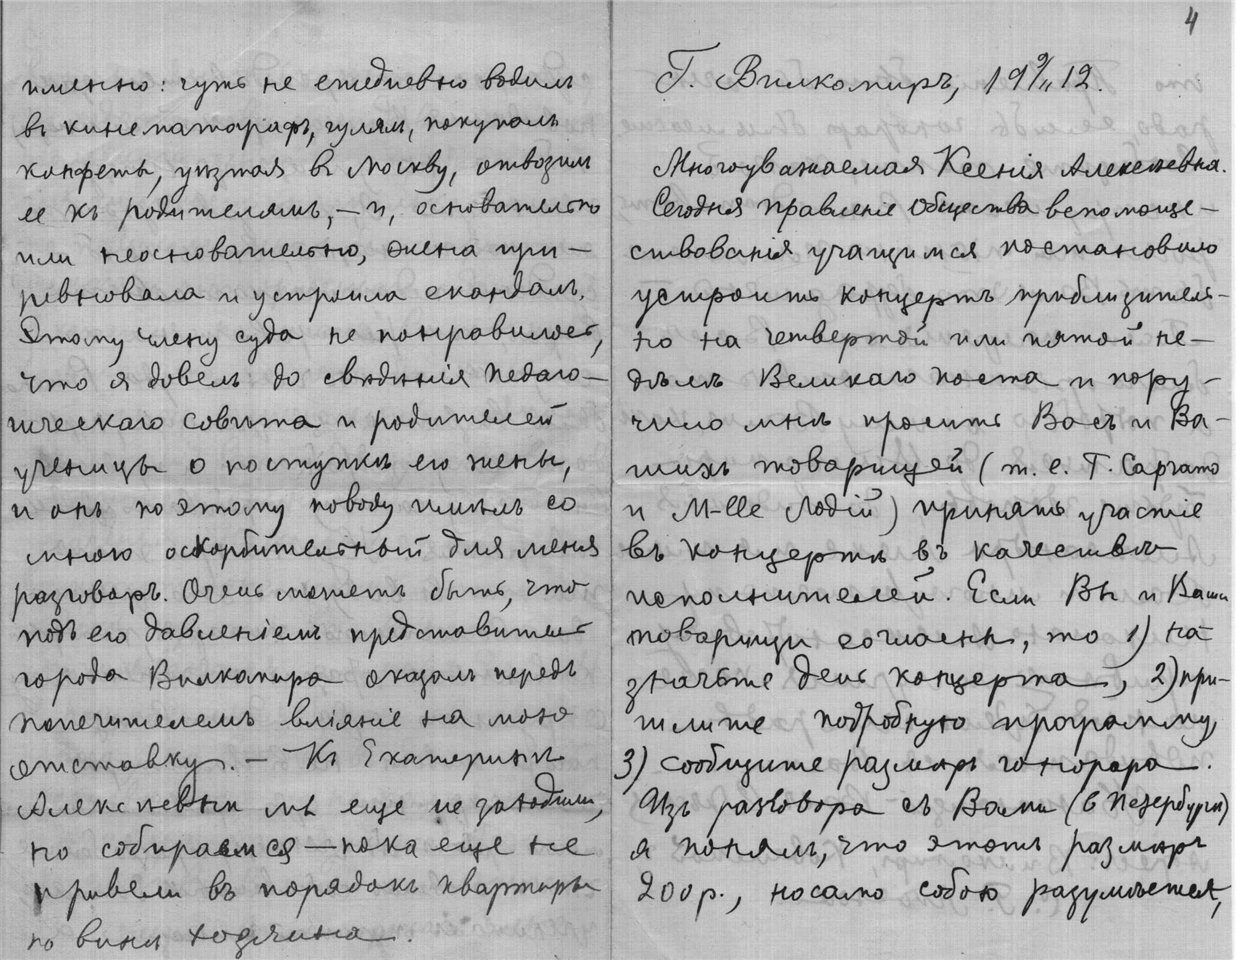 именно: чуть не ежедневно водилъ
въ кинематографъ, гулял, покупалъ
конфеты, уѣзжая въ Москву, отвозилъ
ее къ родителямъ, – и, основательно
или неосновательно, жена при–
ревновала и устроила скандалъ.
Этому члену суда не понравилось,
что я довелъ до свѣдѣнія педаго–
гическаго совѣта и родителей
ученицы о поступкѣ его жены,
и онъ по этому поводу имѣлъ со
мною оскорбительный для меня
разговоръ. Очень можетъ быть, что
подъ его давленіемъ представитель
города Вилкомира оказалъ передъ
попечителемъ вліяніе на мою
отставку. – Къ Екатеринѣ
Алексѣевнѣ мы еще не заходили,
но собираемся – пока еще не
привели въ порядокъ квартиры
по винѣ хозяина.
4
Г. Вилкомиръ, 19 9/II 12.
Многоуважаемая Ксенія Алексѣевна.
Сегодня правленіе Общества вспомоще–
ствованія учащимся постановило
устроить концертъ приблизитель–
но на четвертой или пятой не–
дѣлѣ Великаго поста и пору–
чило мнѣ просить Васъ и Ва–
шихъ товарищей (т. е. Г. Саргато
и M-lle Лодій) принять участіе
въ концертѣ въ качествѣ
исполнителей. Если Вы и Ваши
товарищи согласны, то 1) на
значьте день концерта, 2) при–
шлите подробную программу,
3) сообщите размѣръ гонорара.
Изъ разговора съ Вами (в Петербургѣ)
я понялъ, что этотъ размѣръ
200 р., но само собою разумѣется,